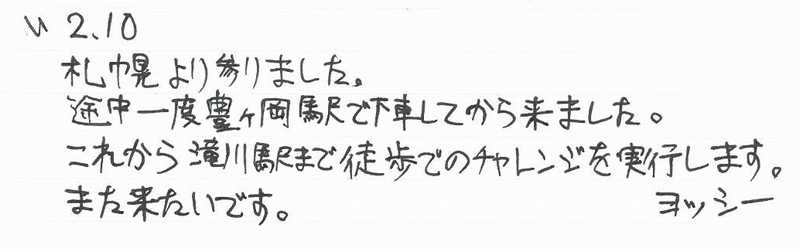 〃 2.10
札幌より参りました。
途中一度豊ヶ岡駅で下車してから来ました。
これから滝川駅まで徒歩でのチャレンジを実行します。
また来たいです。 ヨッシー